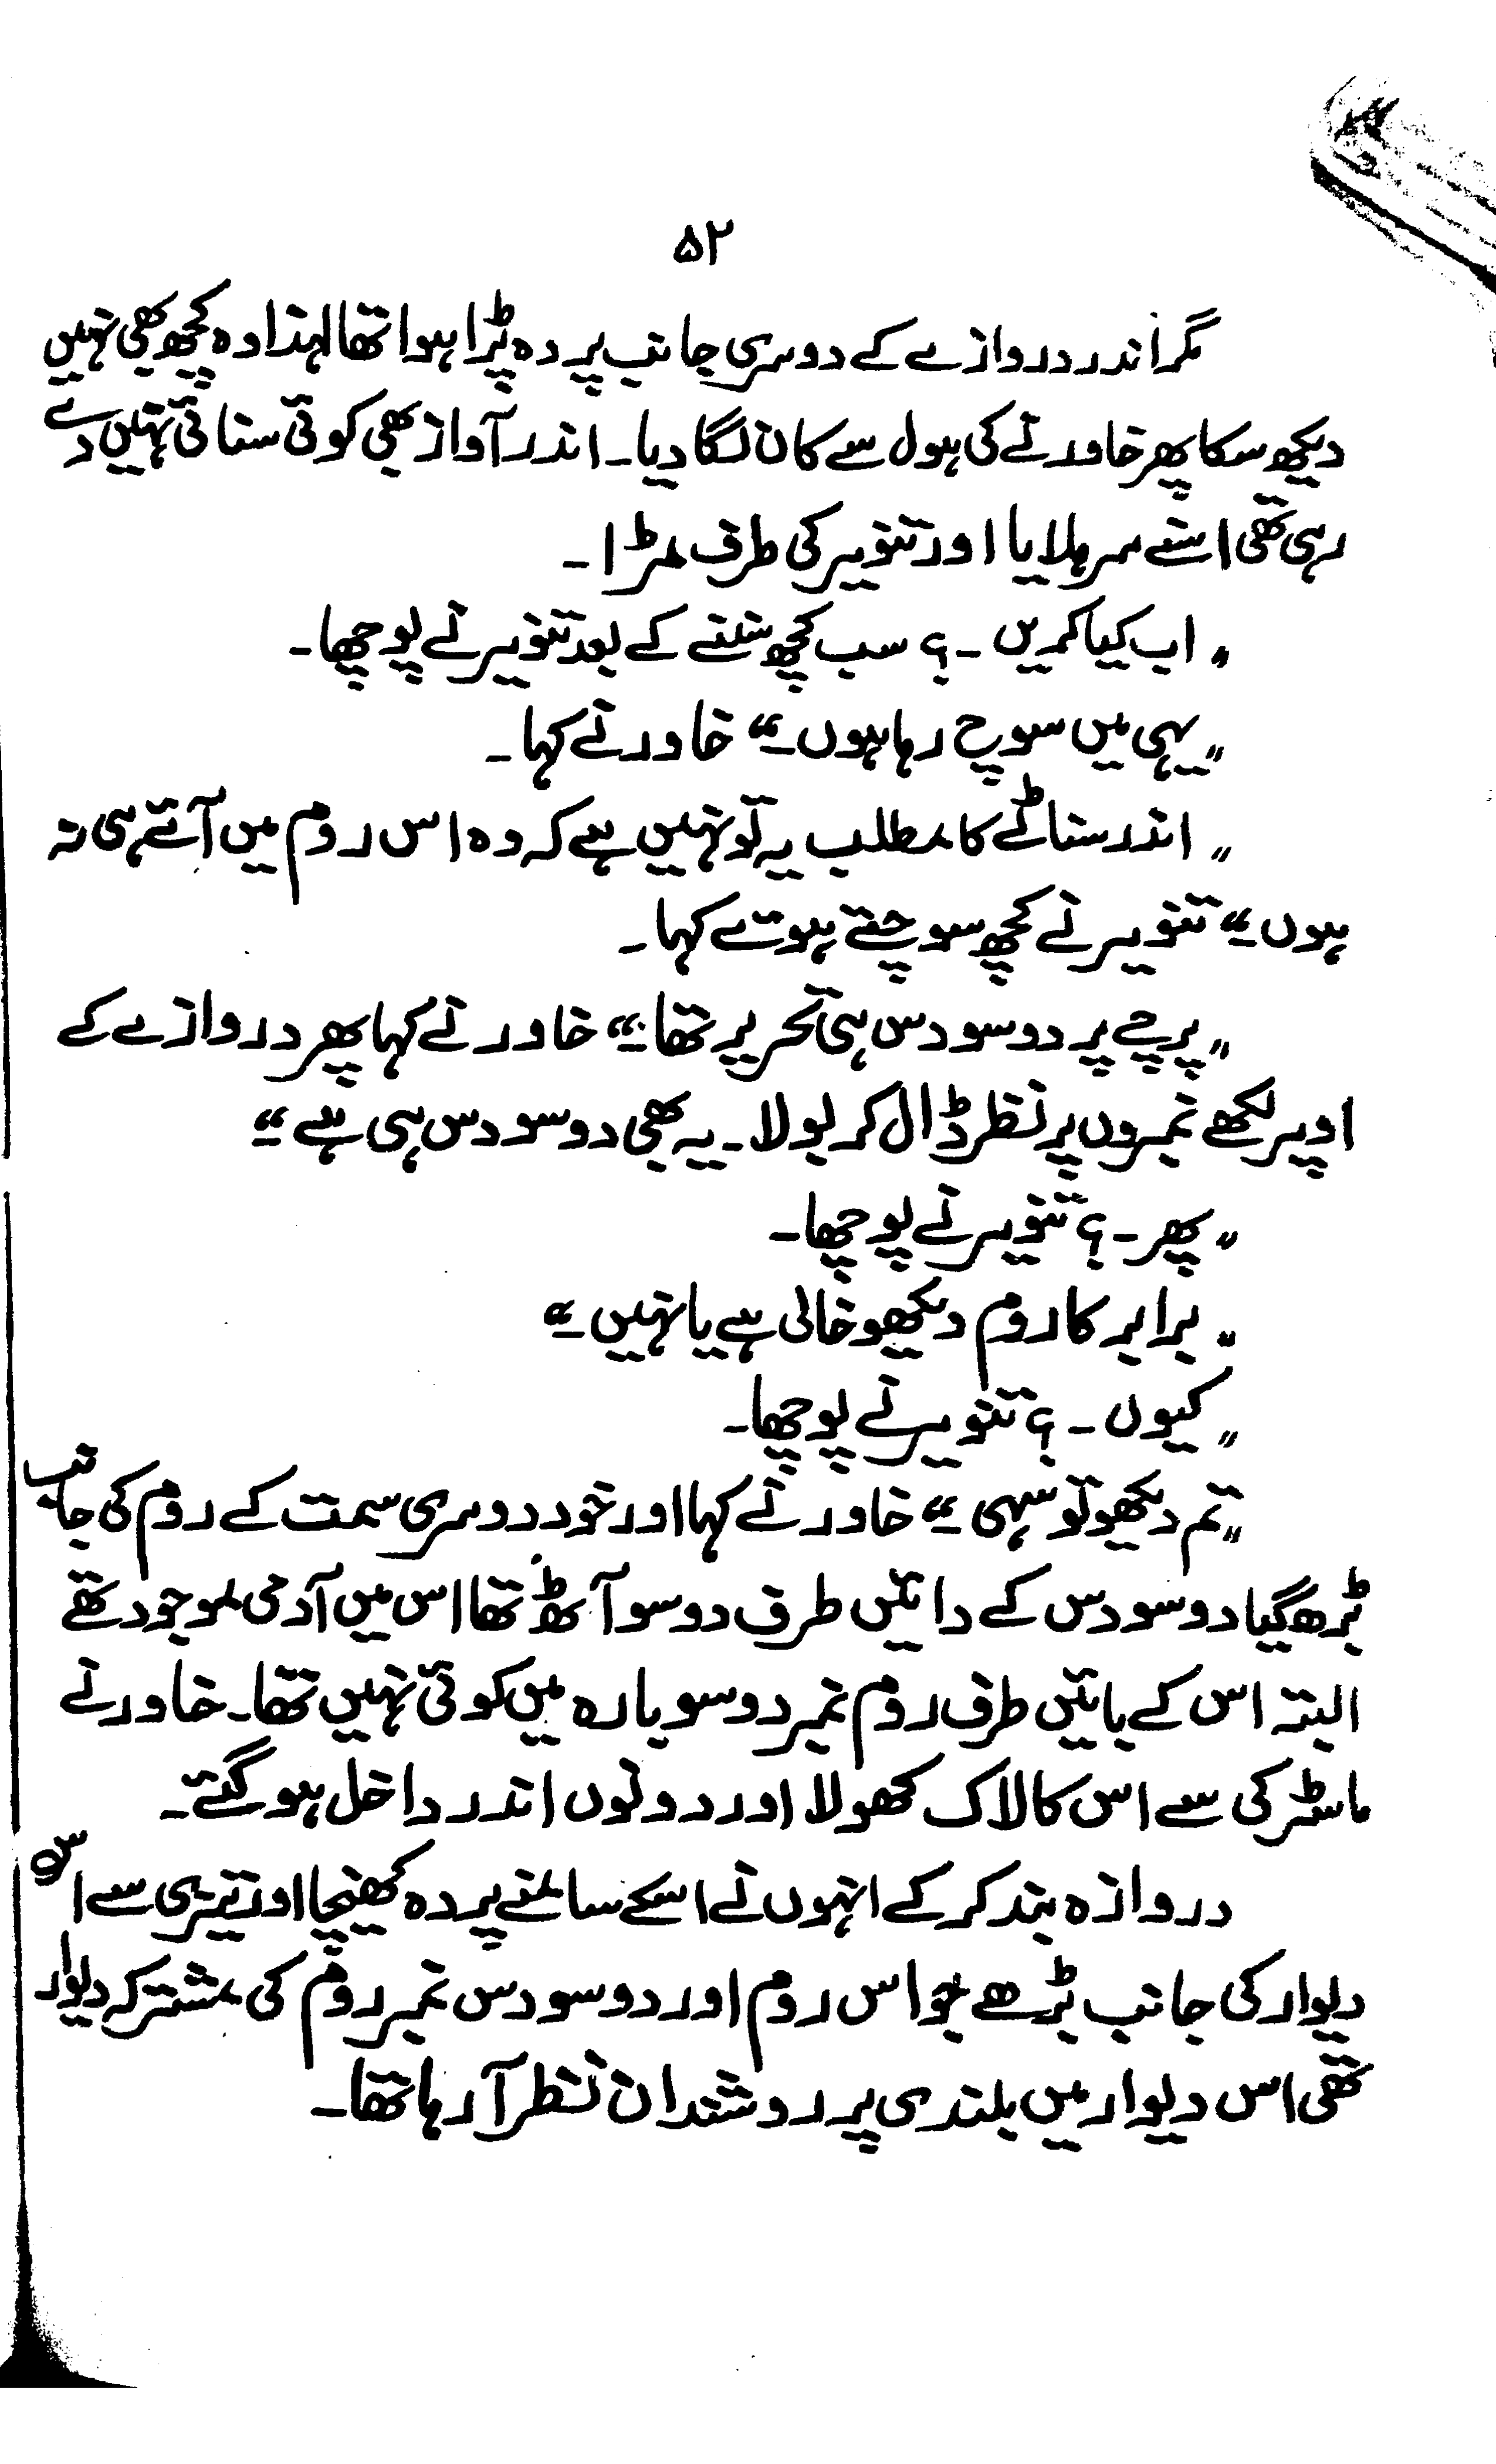 ۵۲
مگر اندر دروازے کے دوسری جانب پردہ پڑا ہوا تھا لہذا وہ کچھ بھی نہیں
دیکھ سکا پھر خاور نے کی ہول سے کان لگا دیا۔ اندر آواز بھی کوئی سنائی نہیں دے
رہی تھی اسنے سر ہلایا اور تنویر کی طرف مڑا۔
"اب کیا کریں ۔؟ سب کچھ سننے کے بعد تنویر نے پوچھا۔
"یہی میں سوچ رہا ہوں۔" خاور نے کہا۔
"اندر سناٹے کا مطلب یہ تو نہیں ہے کہ وہ اس روم میں آتے ہی نہ
ہوں۔" تنویر نے کچھ سوچتے ہوتے کہا۔
"پرچے پر دوسو دس ہی تحریر تھا۔" خاور نے کہا پھر دروازے کے
اوپر لکھے نمبروں پر نظر ڈال کر بولا۔ یہ بھی دوسو دس ہی ہے۔"
"پھر۔؟ تنویر نے پوچھا۔
"برابر کا روم دیکھو خالی ہے یا نہیں۔"
"کیوں۔؟ تنویر نے پوچھا۔
"تم دیکھو تو سہی۔" خاور نے کہا اور خود دوسری سمت کے روم کی جانب
بڑھ گیا دوسو دس کے دائیں طرف دوسو آٹھ تھا اس میں آدمی موجود تھے
البتہ اس کے بائیں طرف روم نمبر دوسو بارہ میں کوئی نہیں تھا۔ خاور نے
ماسٹر کی سے اس کا لاک کھولا اور دونوں اندر داخل ہو گئے۔
دروازہ بند کر کے انہوں نے اسکے سامنے پردہ کھینچا اور تیزی سے اس
دیوار کی جانب بڑھے جو اس روم اور دوسو دس نمبر روم کی مشترکہ دیوار
تھی اس دیوار میں بلندی پر روشندان نظر آ رہا تھا۔